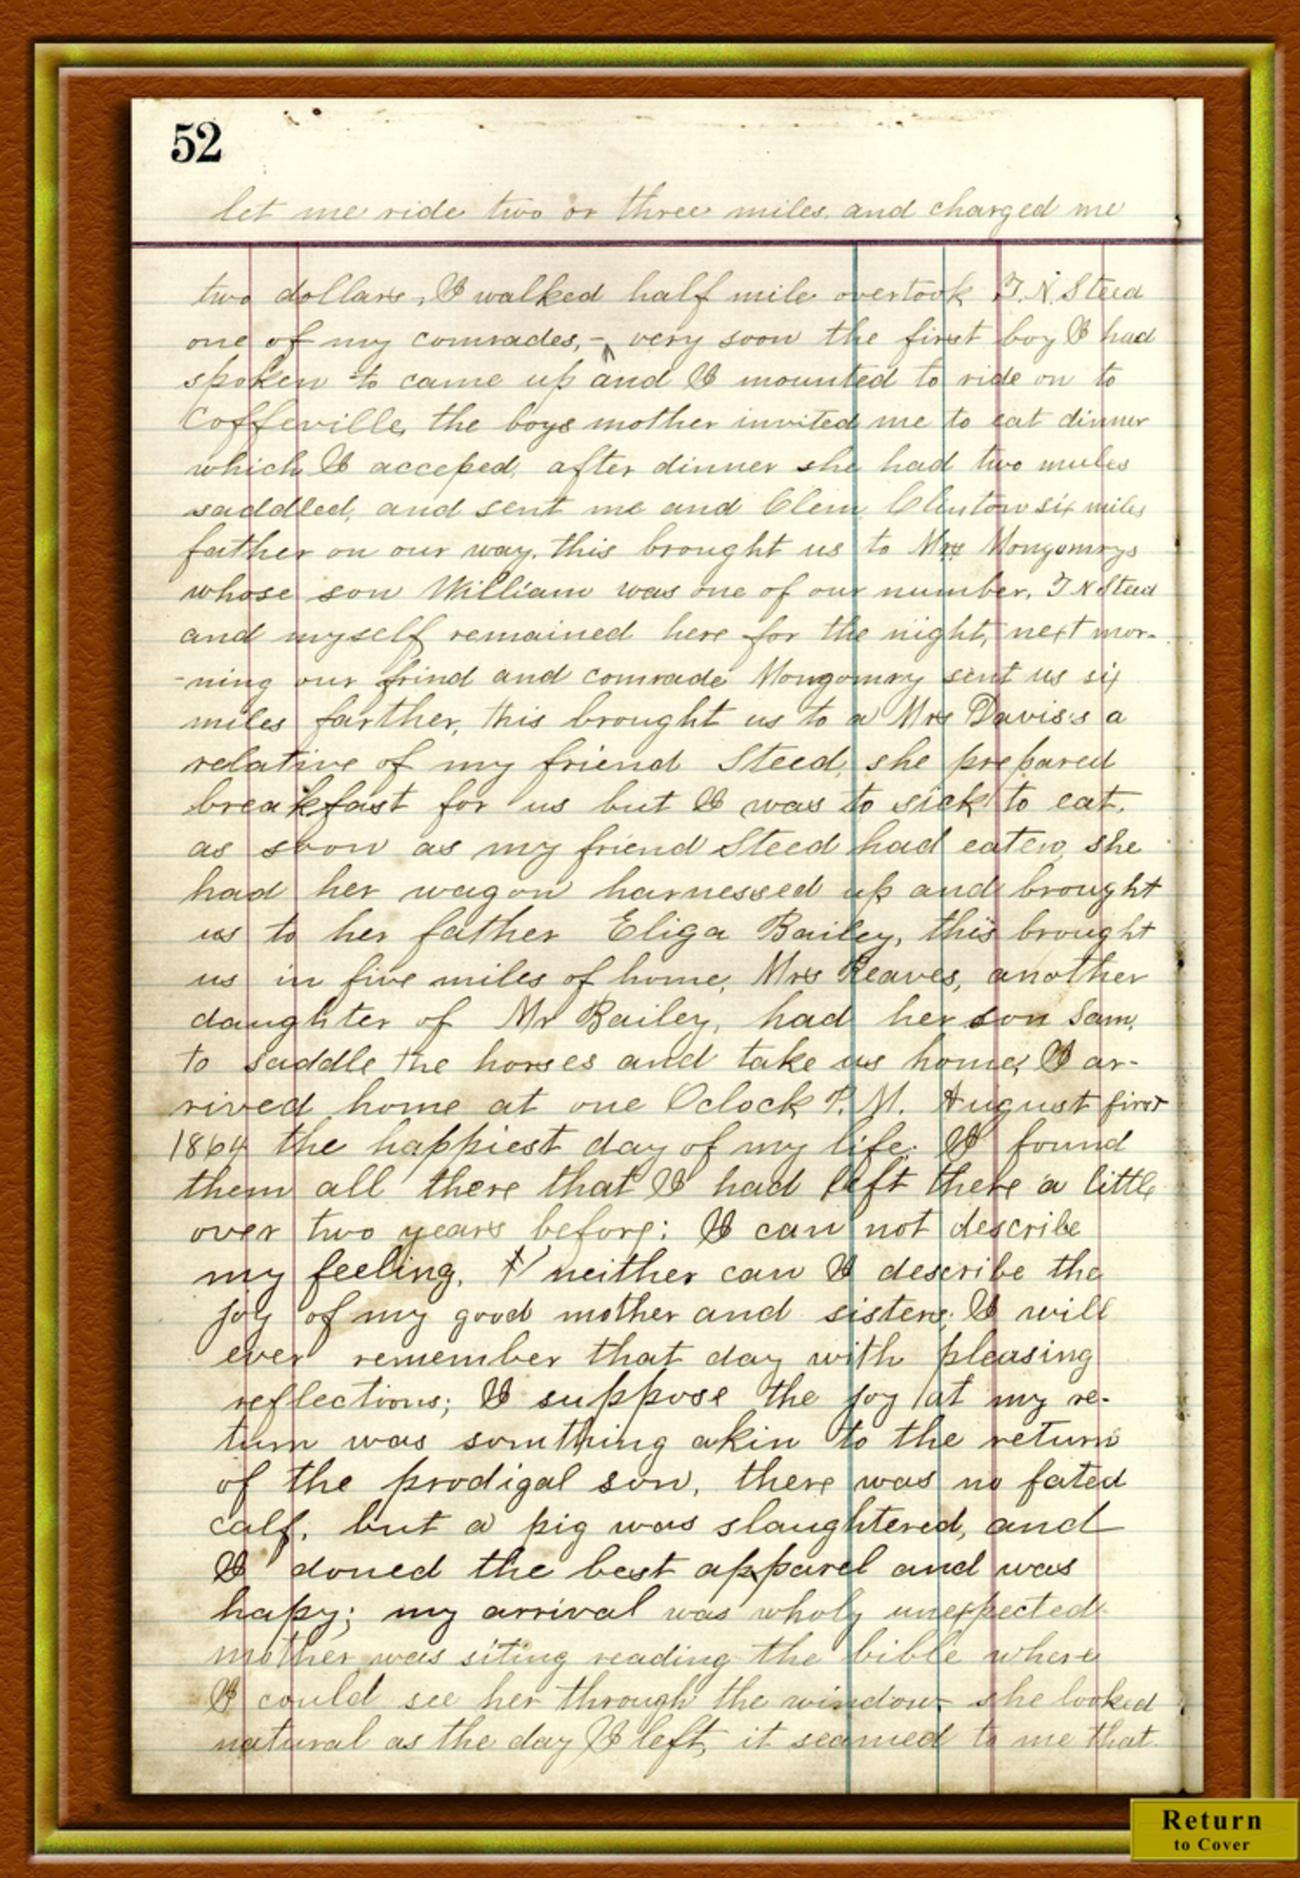 52
let me ride two or three miles, and charged me
two dollars, I walked half mile overtook T. N. Steed
one of my comrades,- very soon the first boy I had
spoken to came up and I mounted to ride on to
Coffeeville, the boys mother invited me to eat dinner
which I acceped, after dinner she had two mules
saddled, and sent me and Clem Clinton six miles
father on our way. this brought us to Mrs Mongomrys
whose son William was one of our number, T N Steed
and myself remained here for the night, next mor-
-ning our frind and comrade Mongomry sent us six
miles farther, this brought us to a Mrs Davis's a
relative of my friend Steed, she prepared
breakfast for us but I was to sick to eat.
as soon as my friend Steed had eaten, she
had her wagon harnessed up and brought
us to her father Eliga Bailey, this brought
us in five miles of home, Mrs Reaves, another
daughter of Mr Bailey, had her son Sam,
to saddle the horses and take us home, I ar-
rived home at one Oclock P. M. August first
1864 the happiest day of my life. I found
them all there that I had left there a little
over two years before: I can not describe
my feeling, neither can I describe the
joy of my good mother and sisters, I will
ever remember that day with pleasing
reflections; I suppose the joy at my re-
turn was somthing akin to the return
of the prodigal son, there was no fated
calf, but a pig was slaughtered, and
I doned the best apparel and was
hapy; my arrival was wholy unexpected
mother was siting reading the bible where
I could see her through the window- she looked
natural as the day I left, it seamed to me that
Return
to Cover